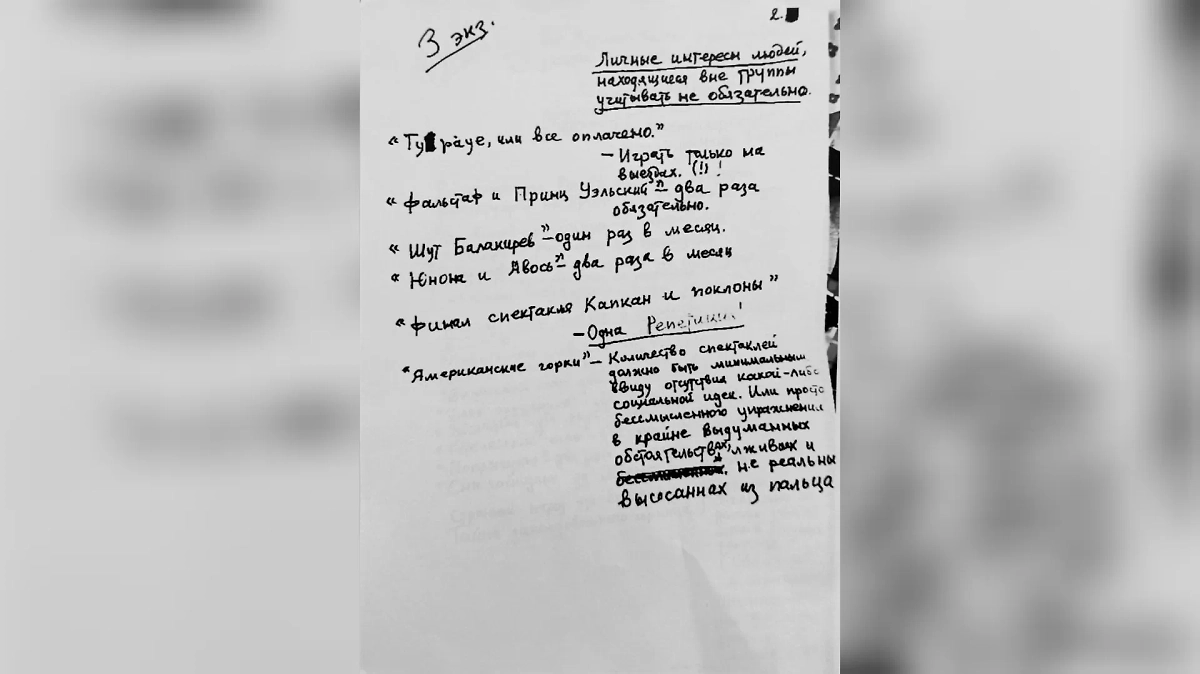 2.
3 экз.
Личные интересы людей,
находящиеся вне группы
учитывать не обязательно.
"Ту раче, или все оплачено."
- Играть только на
выездах. (!) !
"Фальстаф и Принц Уэльский" - два раза
обязательно.
"Шут Балакирев" - один раз в месяц.
"Юнона и Авось" - два раза в месяц
"Финал спектакля Капкан и поклоны"
- Одна Репетиция!
"Американские горки" - Количество спектаклей
должно быть минимальным
ввиду отсутствия какой-либо
социальной идеи. Или просто
бессмысленного упражнения
в крайне выдуманных
обстоятельствах, лживых и
не реальны
высосаннах из пальца